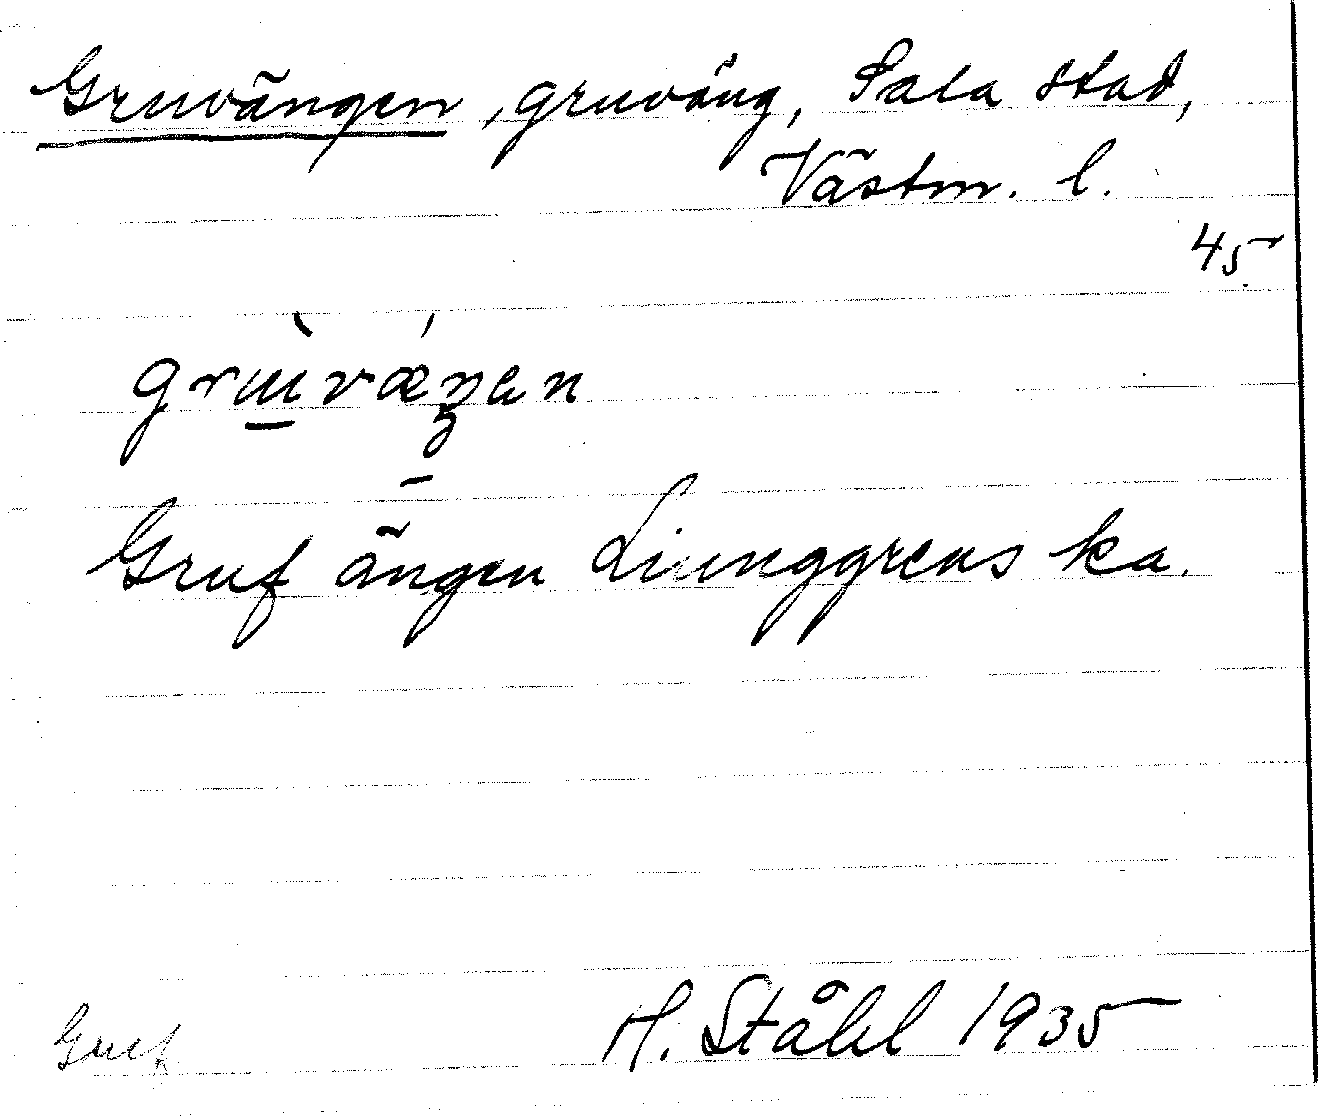 Gruvängen, gruväng, Sala stad,
Västm. l.
45.
grɯ̀vǽŋen
Gruf ängen Liunggrens ka.
Gruf
H. Ståhl 1935